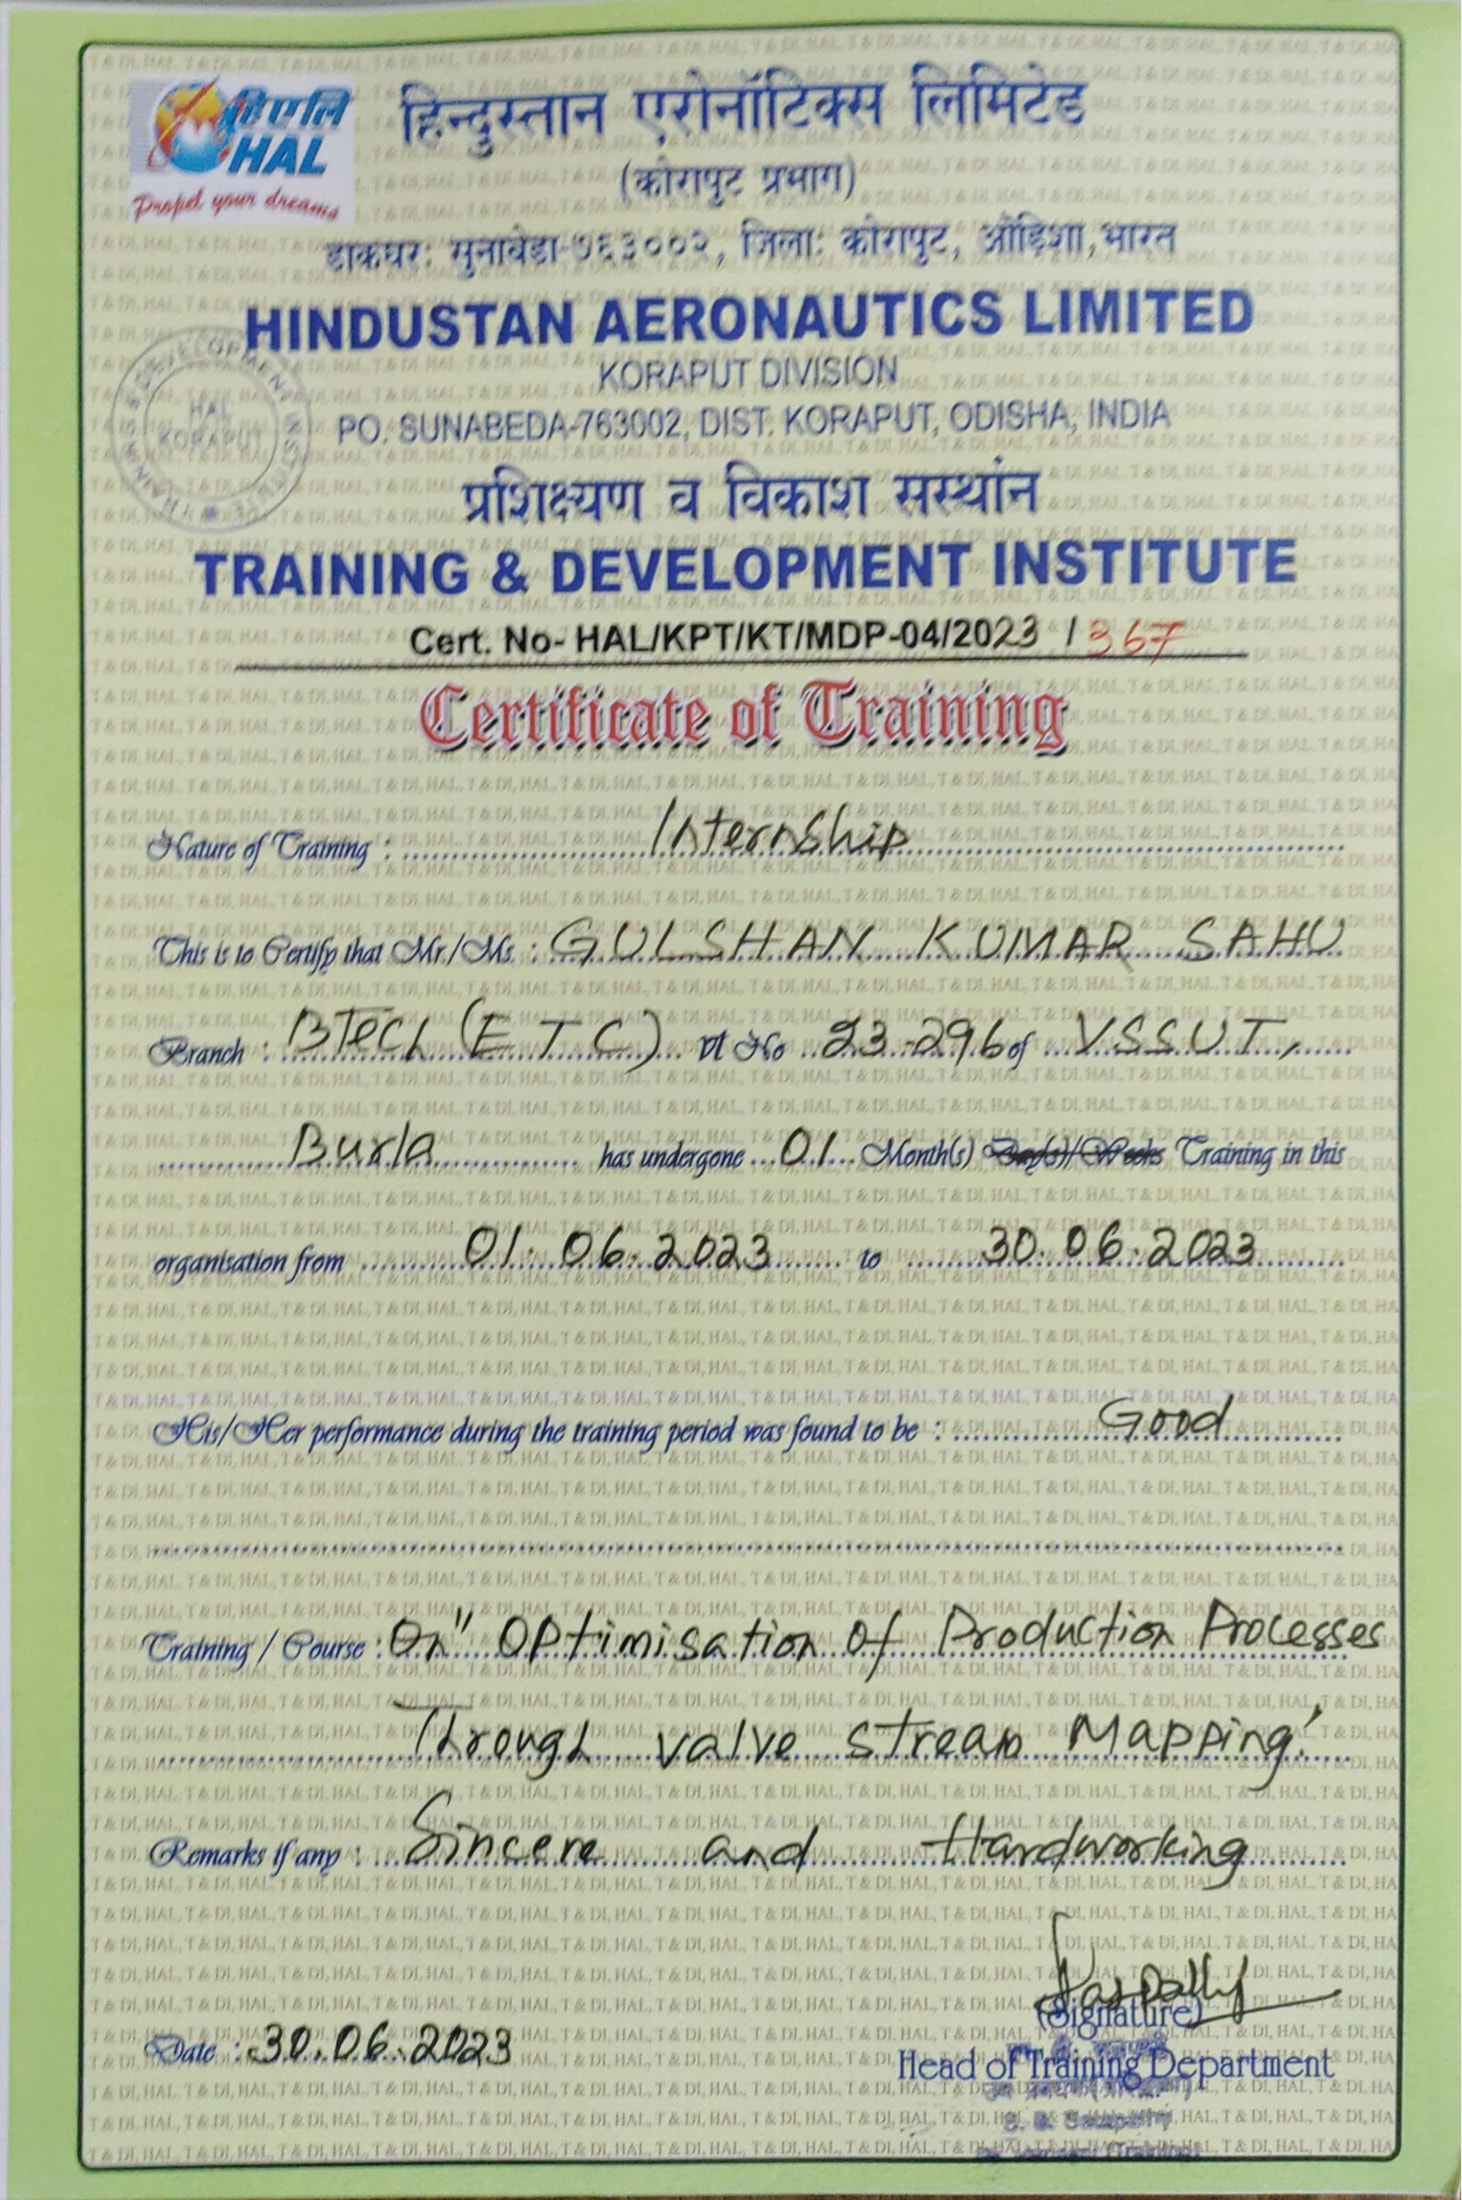 हिएलि
HAL
Propel your dreams
हिन्दुस्तान एरोनॉटिक्स लिमिटेड
(कोरापुट प्रभाग)
डाकघर: सुनाबेडा-७६३००२, जिला: कोरापुट, ओड़िशा,भारत
HINDUSTAN AERONAUTICS LIMITED
KORAPUT DIVISION
PO. SUNABEDA-763002, DIST. KORAPUT, ODISHA, INDIA
TRAINING & DEVELOPMENT INSTITUTE
HAL
KORAPUT
प्रशिक्ष्यण व विकाश सस्थांन
TRAINING & DEVELOPMENT INSTITUTE
Cert. No- HAL/KPT/KT/MDP-04/2023 / 367
Certificate of Training
Nature of Training : Internship
This is to Certify that Mr./Ms. : GULSHAN KUMAR SAHU
Branch : BTech (ETC) Vt No 23-296 of VSSUT,
Burla has undergone 01 Month(s) Day(s)/Weeks Training in this
organisation from 01.06.2023 to 30.06.2023
His/Her performance during the training period was found to be : Good
Training / Course : On" Optimisation of Production Processes
Through valve stream Mapping'.
Remarks if any : Sincere and Hardworking
(Signature)
Date : 30.06.2023
Head of Training Department